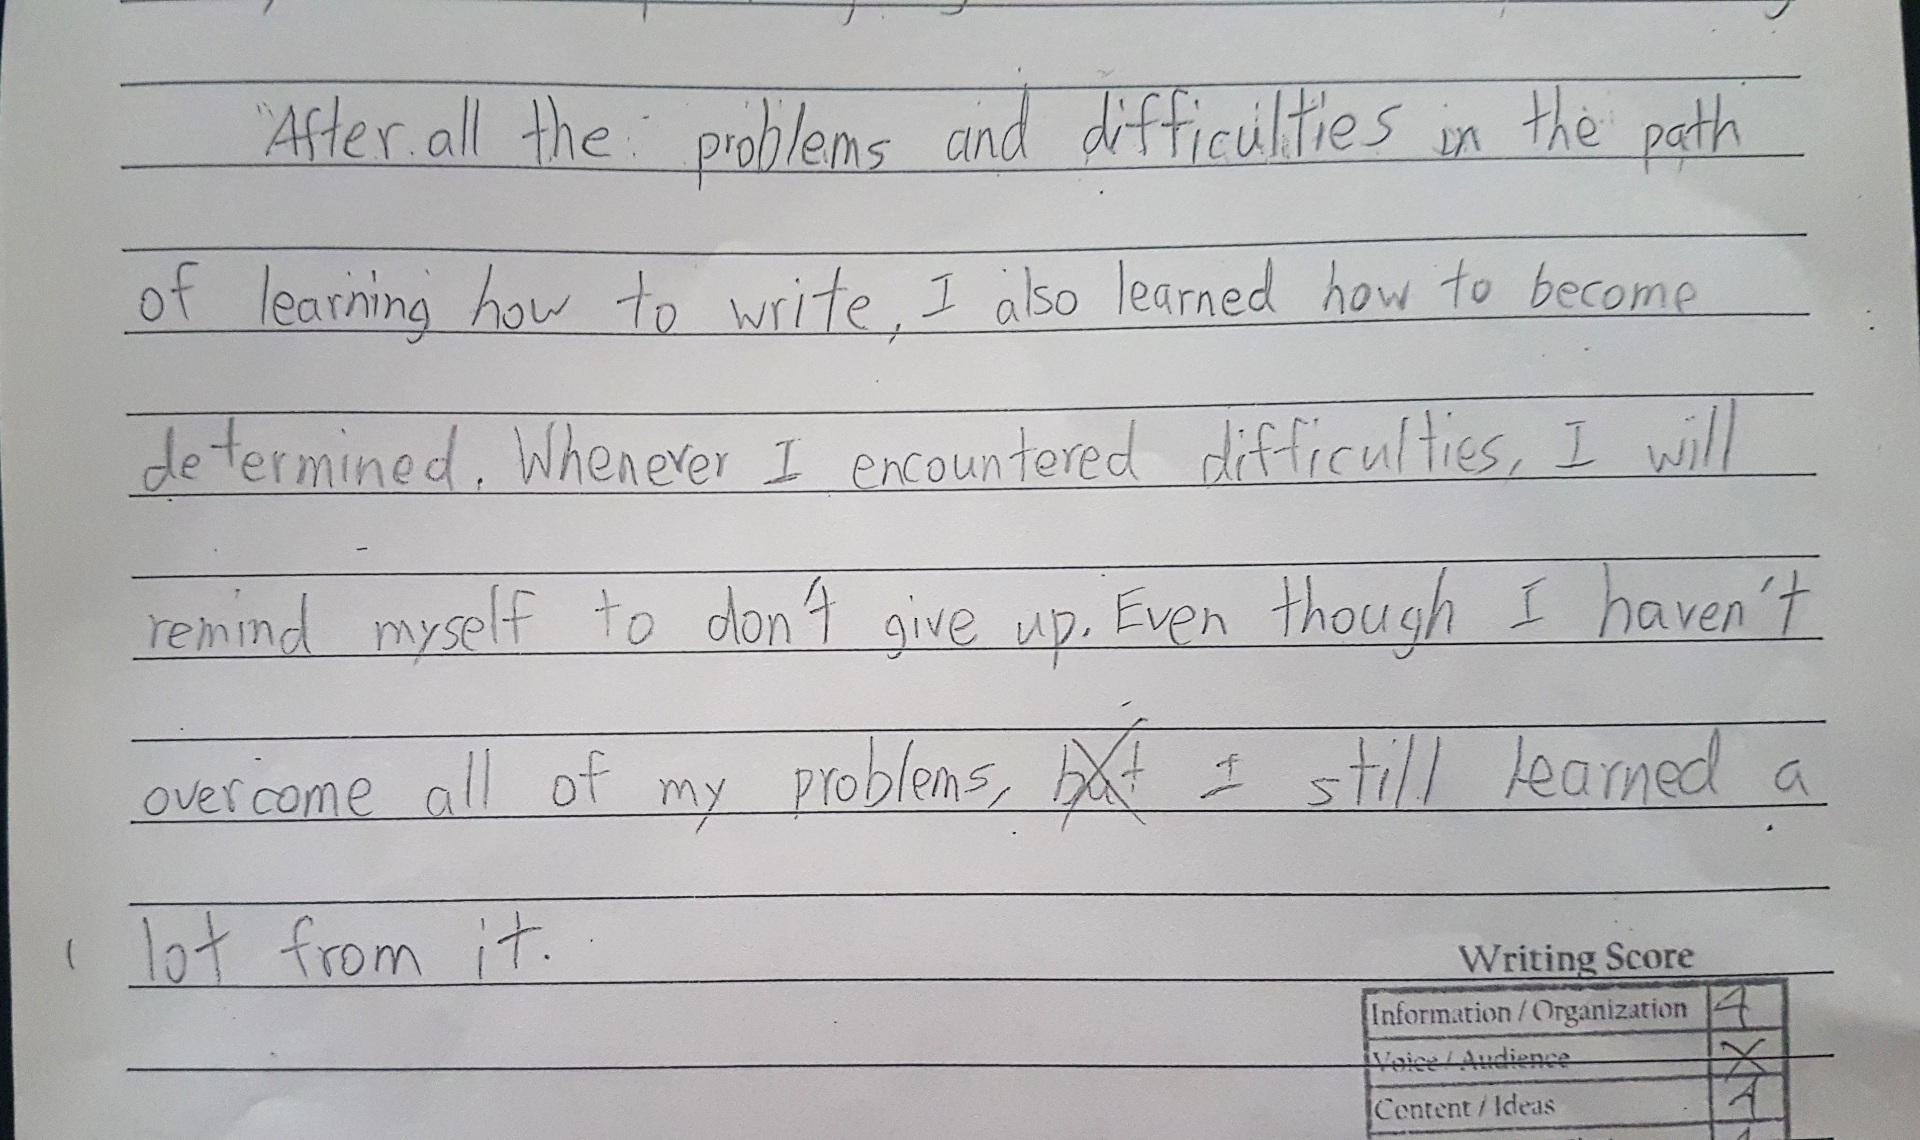 "After all the problems and difficulties in the path
of learning how to write, I also learned how to become
determined. Whenever I encountered difficulties, I will
remind myself to don't give up. Even though I haven't
overcome all of my problems, but I still learned a
lot from it.
Writing Score
Information / Organization 4
Voice / Audience X
Content / Ideas 4